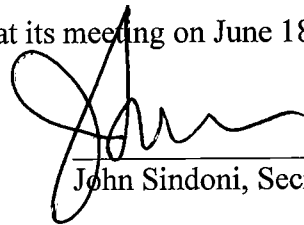 at its meeting on June 18
John Sindoni, Sec